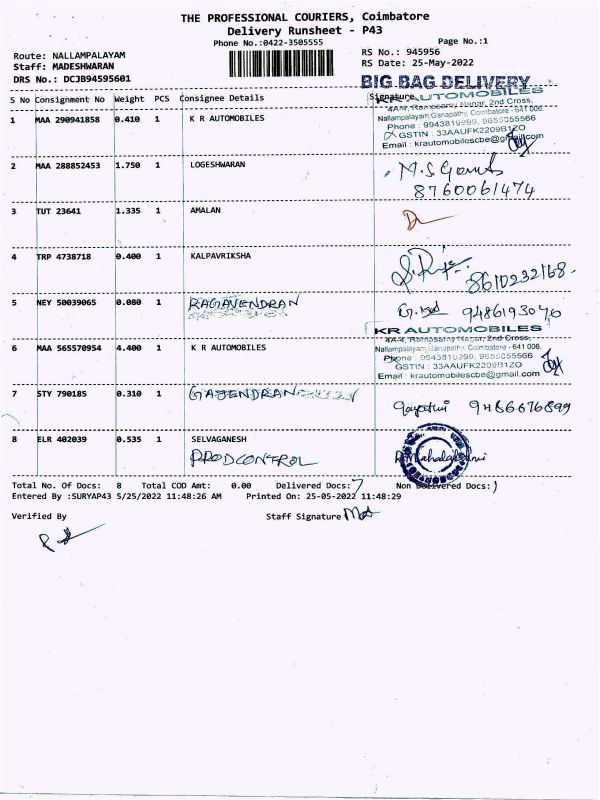 THE PROFESSIONAL COURIERS, Coimbatore
Delivery Runsheet - P43
Phone No.:0422-3505555
Page No.:1
Route: NALLAMPALAYAM
RS No.: 945956
Staff: MADESHWARAN
RS Date: 25-May-2022
DRS No.: DCJB94595601
BIG BAG DELIVERY
S No Consignment No Weight PCS Consignee Details Signature
KR AUTOMOBILES
1 MAA 290941858 0.410 1 K R AUTOMOBILES
Nallampalayam, Ganapathy, Coimbatore - 641 006.
Phone : 9943819999, 9655055566
GSTIN : 33AAUFK2209B1ZO
Email : krautomobilescbe@gmail.com
2 MAA 288852453 1.750 1 LOGESHWARAN
8760061474
3 TUT 23641 1.335 1 AMALAN
4 TRP 4738718 0.400 1 KALPAVRIKSHA
8610232168
5 NEY 50039065 0.080 1 RAGAVENDRAN
9486193040
KR AUTOMOBILES
4A-4, Ramasamy Nagar, 2nd Cross,
6 MAA 565570954 4.400 1 K R AUTOMOBILES
Nallampalayam, Ganapathy, Coimbatore - 641 006.
Phone : 9943819999, 9655055566
GSTIN : 33AAUFK2209B1ZO
Email : krautomobilescbe@gmail.com
7 STY 790185 0.310 1 GAJENDRAN
gayathri 9486676899
8 ELR 402039 0.535 1 SELVAGANESH
PRODCONTROL
Total No. Of Docs: 8 Total COD Amt: 0.00 Delivered Docs: 7 Non Delivered Docs: 1
Entered By :SURYAP43 5/25/2022 11:48:26 AM Printed On: 25-05-2022 11:48:29
Verified By
Staff Signature